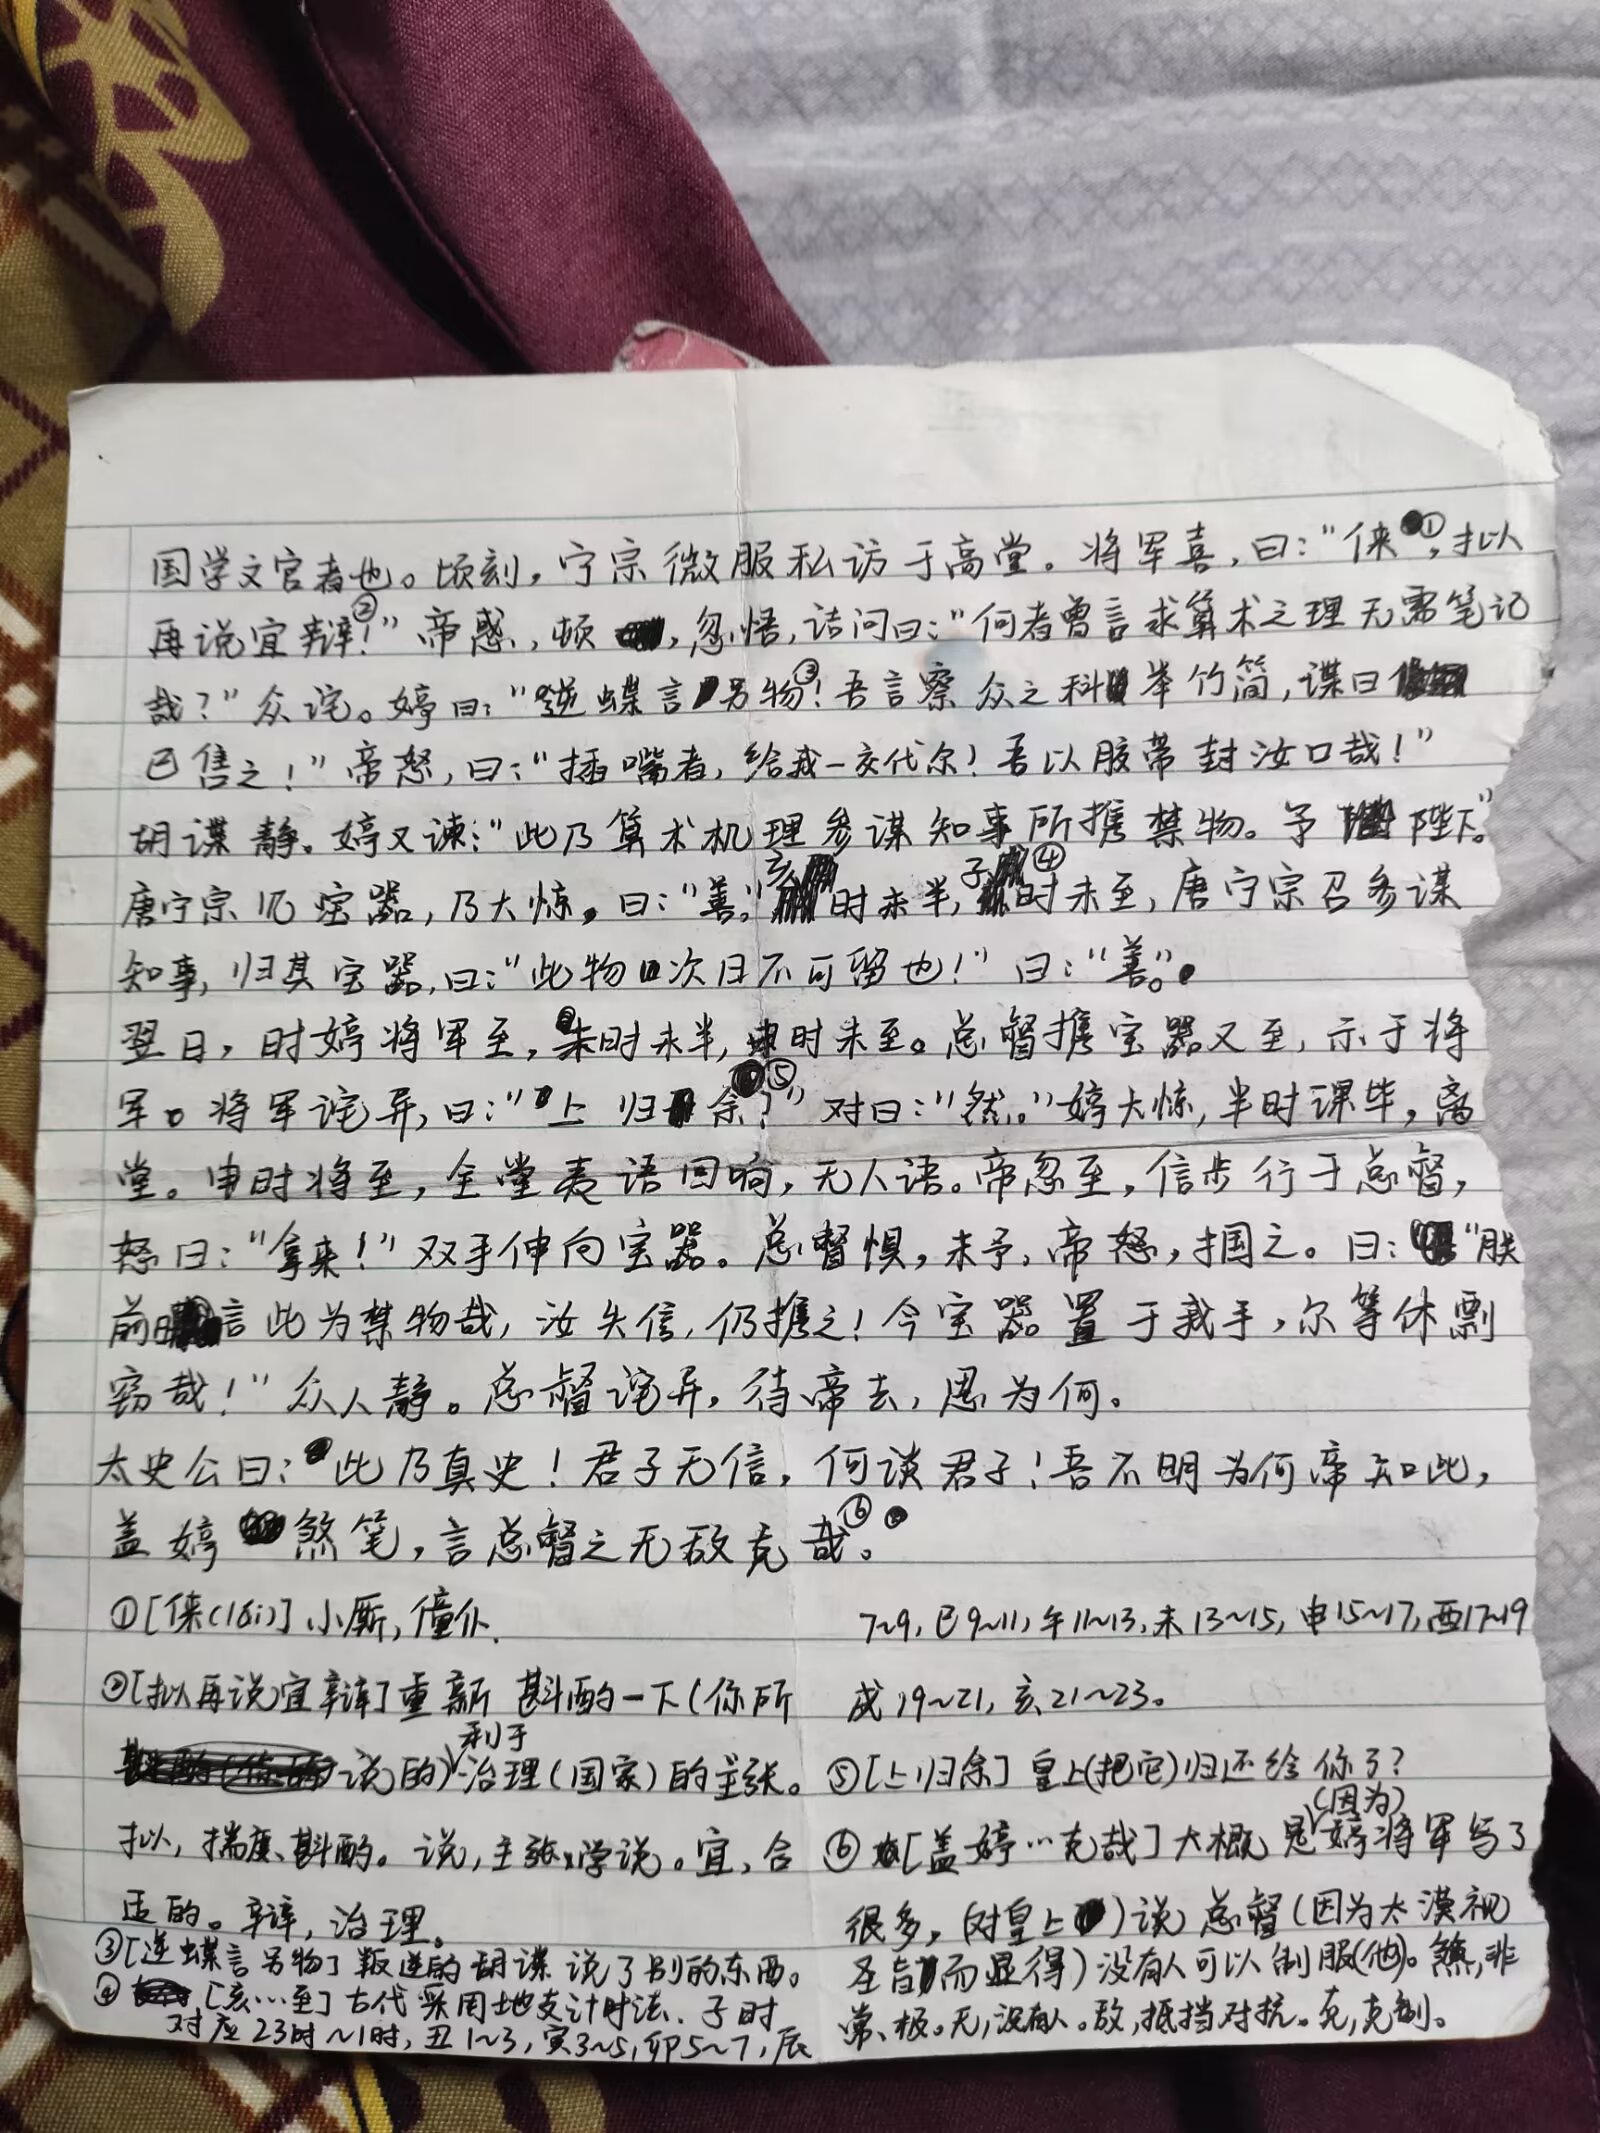 国学文官者也。顷刻，宁宗微服私访于高堂。将军喜，曰：“俫①，拟
再说宜辩②！”帝惑，顿，忽悟，诘问曰：“何者曾言求算术之理无需笔记
哉？”众诧。婷曰：“逆蝶言另物③！吾言察众之科举竹简，谍曰
已售之！”帝怒，曰：“插嘴者，给我一交代尔！吾以胶带封汝口哉！”
胡谍静。婷又谏：“此乃算术机理参谋知事所携禁物。予陛下。”
唐宁宗见宝器，乃大惊。曰：“善。”亥时未半，子时未至④，唐宁宗召参谋
知事，归其宝器，曰：“此物次日不可留也！”曰：“善”。
翌日，时婷将军至，未时未半，申时未至。总督携宝器又至，示于将
军。将军诧异，曰：“上归余？⑤”对曰：“然。”婷大惊，半时课毕，离
堂。申时将至，全堂夷语回响，无人语。帝忽至，信步行于总督，
怒曰：“拿来！”双手伸向宝器。总督惧，未予，帝怒，掴之。曰：“朕
前言此为禁物哉，汝失信，仍携之！今宝器置于我手，尔等休剽
窃哉！”众人静。总督诧异，待帝去，思为何。
太史公曰：此乃真史！君子无信，何谈君子！吾不明为何帝知此，
盖婷煞笔，言总督之无敌克哉⑥。
①[俫(lái)]小厮，僮仆.
②[拟再说宜辩]重新斟酌一下(你所
说的)利于治理(国家)的主张。
拟，揣度、斟酌。说，主张、学说。宜，合
适的。辩，治理。
③[逆蝶言另物]叛逆的胡谍说了别的东西。
④[亥…至]古代采用地支计时法.子时
对应23时~1时，丑1~3，寅3~5，卯5~7，辰
7~9，巳9~11，午11~13，未13~15，申15~17，酉17~19
戌19~21，亥21~23。
⑤[上归余]皇上(把它)归还给你了？
⑥[盖婷…克哉]大概是(因为)婷将军写了
很多，(对皇上)说总督(因为太漠视
圣旨而显得)没有人可以制服(他)。煞，非
常、极。无，没有人。敌，抵挡对抗。克，克制。